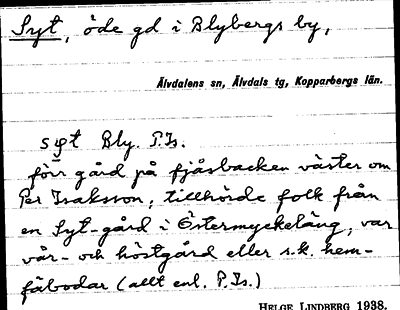 Syt, öde gd i Blybergs by,
Älvdalens sn, Älvdals tg, Kopparbergs län.
syt Bly. P.Is.
förr gård på fjåsbacken väster om
Per Isaksson, tillhörde folk från
en Syt-gård i Östermyckeläng, var
vår- och höstgård eller s.k. hem-
fäbodar (allt enl. P.Is.)
HELGE LINDBERG 1938.